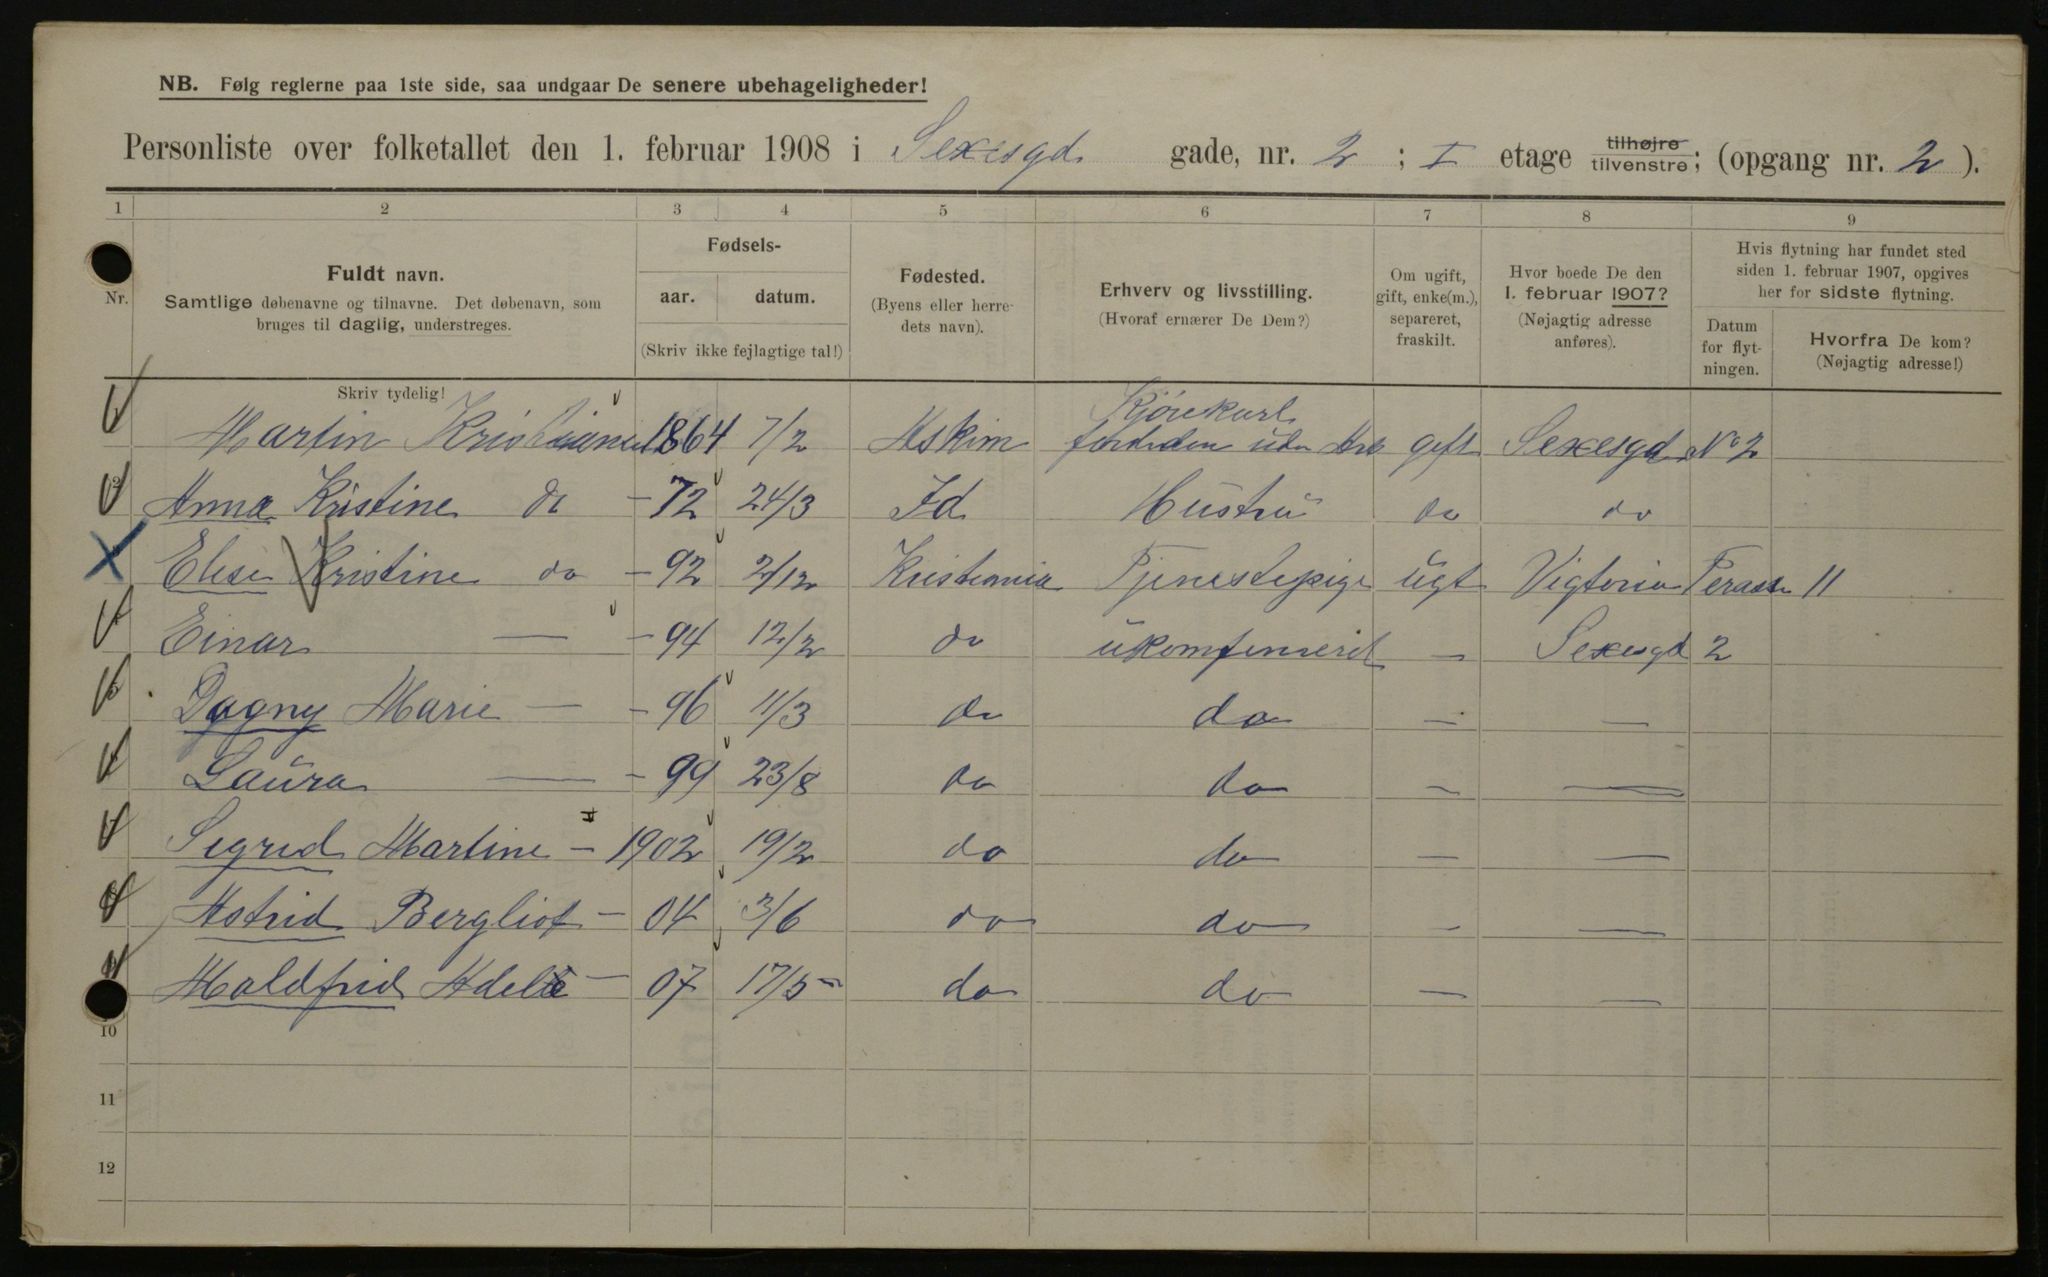 NB. Følg reglerne paa 1ste side, saa undgaar De senere ubehageligheder!
Personliste over folketallet den 1. februar 1908 i Sexesgd gade, nr. 2 ; I etage tilhøjre tilvenstre; (opgang nr. 2 ).
1 2 3 4 5 6 7 8 9
Nr.
Fuldt navn.
Samtlige døbenavne og tilnavne. Det døbenavn, som
bruges til daglig, understreges.
Fødsels-
aar. datum.
(Skriv ikke fejlagtige tal!)
Fødested.
(Byens eller herre-
dets navn).
Erhverv og livsstilling.
(Hvoraf ernærer De Dem?)
Om ugift,
gift, enke(m.),
separeret,
fraskilt.
Hvor boede De den
1. februar 1907?
(Nøjagtig adresse
anføres).
Hvis flytning har fundet sted
siden 1. februar 1907, opgives
her for sidste flytning.
Datum
for flyt-
ningen.
Hvorfra De kom?
(Nøjagtig adresse!)
Skriv tydelig!
Kjörekarl
Martin 1864 7/2 Askim uden Arb gift Sexesgd No 2
Anna Kristine do - 72 24/3 Id Hustru do do
Elise Kristine do - 92 2/12 Kristiania Tjenestepige ugt Vigtoria Terasse 11
Einar — - 94 12/2 do ukomfirmeret — Sexesgd 2
Dagny Marie — - 96 11/3 do do — —
Laura — - 99 23/8 do do — —
Sigrid Martine - 1902 19/2 do do — —
Astrid Bergliot - 04 3/6 do do — —
Maldfrid Adele - 07 17/5 do do — —
10
11
12